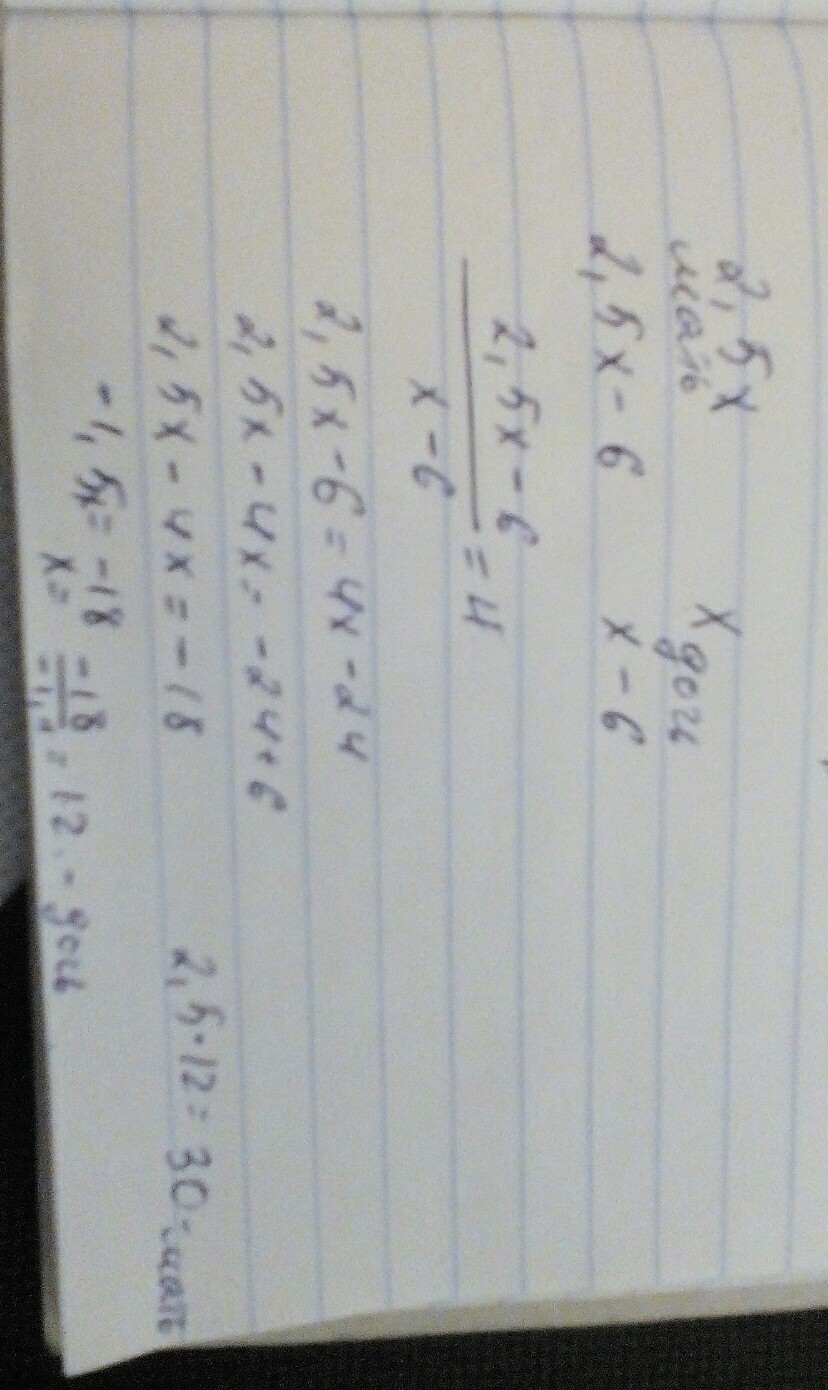 2,5x x
мать дочь
2,5x-6 x-6
2,5x-6
x-6
=4
2,5x-6=4x-24
2,5x-4x=-24+6
2,5x-4x=-18
2,5·12=30-мать
-1,5x=-18
x= -18/-1,5 =12.-дочь